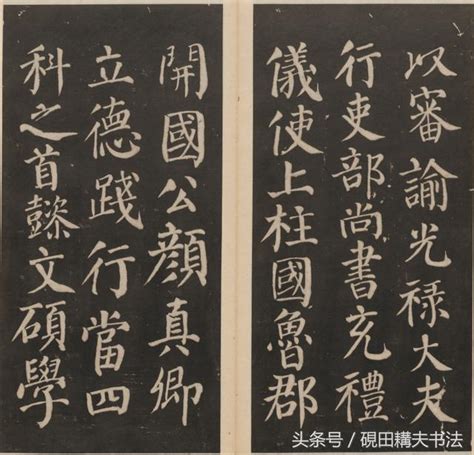 以審諭光禄大夫
行吏部尚書充禮
儀使上柱國魯郡
開國公顔真卿
立德踐行當四
科之首懿文碩學
头条号／硯田耩夫书法